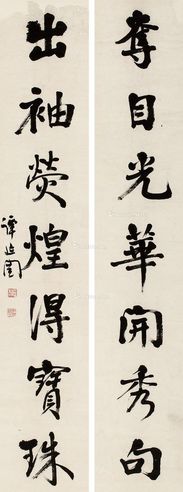 奪目光華開秀句
出袖熒煌得寶珠
譚延闓